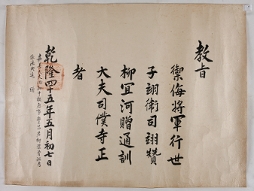 教旨
禦侮將軍行世
子翊衛司翊贊
柳宜河贈通訓
大夫司僕寺正
者
乾隆四十五年五月初七日